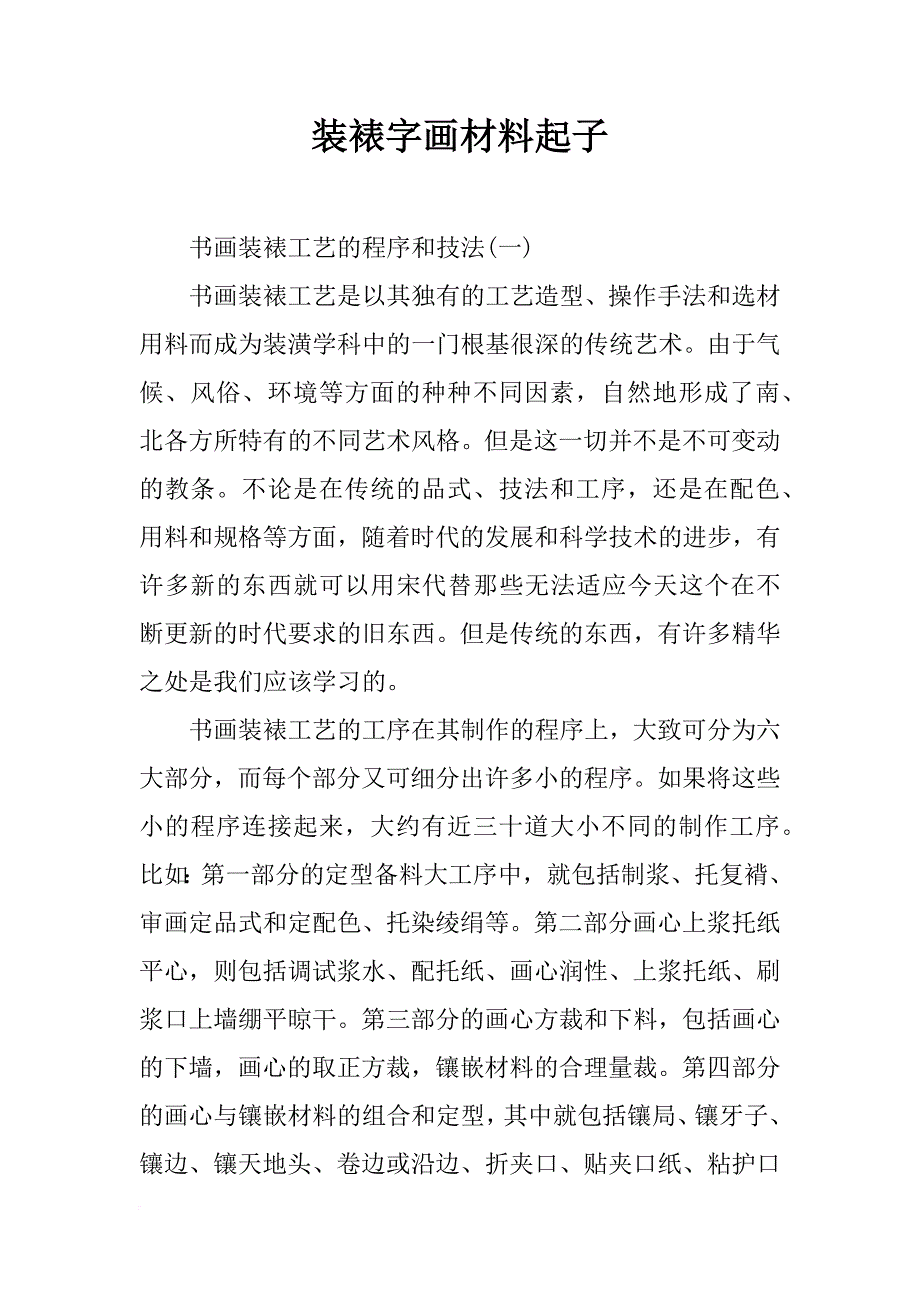 装裱字画材料起子
书画装裱工艺的程序和技法(一)
书画装裱工艺是以其独有的工艺造型、操作手法和选材
用料而成为装潢学科中的一门根基很深的传统艺术。由于气
候、风俗、环境等方面的种种不同因素，自然地形成了南、
北各方所特有的不同艺术风格。但是这一切并不是不可变动
的教条。不论是在传统的品式、技法和工序，还是在配色、
用料和规格等方面，随着时代的发展和科学技术的进步，有
许多新的东西就可以用宋代替那些无法适应今天这个在不
断更新的时代要求的旧东西。但是传统的东西，有许多精华
之处是我们应该学习的。
书画装裱工艺的工序在其制作的程序上，大致可分为六
大部分，而每个部分又可细分出许多小的程序。如果将这些
小的程序连接起来，大约有近三十道大小不同的制作工序。
比如：第一部分的定型备料大工序中，就包括制浆、托复褙、
审画定品式和定配色、托染绫绢等。第二部分画心上浆托纸
平心，则包括调试浆水、配托纸、画心润性、上浆托纸、刷
浆口上墙绷平晾干。第三部分的画心方裁和下料，包括画心
的下墙，画心的取正方裁，镶嵌材料的合理量裁。第四部分
的画心与镶嵌材料的组合和定型，其中就包括镶局、镶牙子、
镶边、镶天地头、卷边或沿边、折夹口、贴夹口纸、粘护口